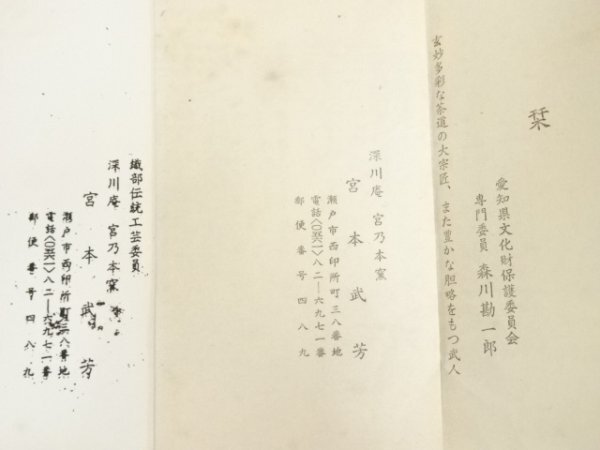 栞
愛知県文化財保護委員会
専門委員 森川勘一郎
玄妙多彩な茶道の大宗匠、また豊かな胆略をもつ武人
深川庵 宮乃本窯
宮本武芳
瀬戸市西印所町三八番地
電話〈〇五六一〉八二―六九七一番
郵便番号四八九
織部伝統工芸委員
深川庵 宮乃本窯
宮本武芳
瀬戸市西印所町三八番地
電話〈〇五六一〉八二―六九七一番
郵便番号四八九